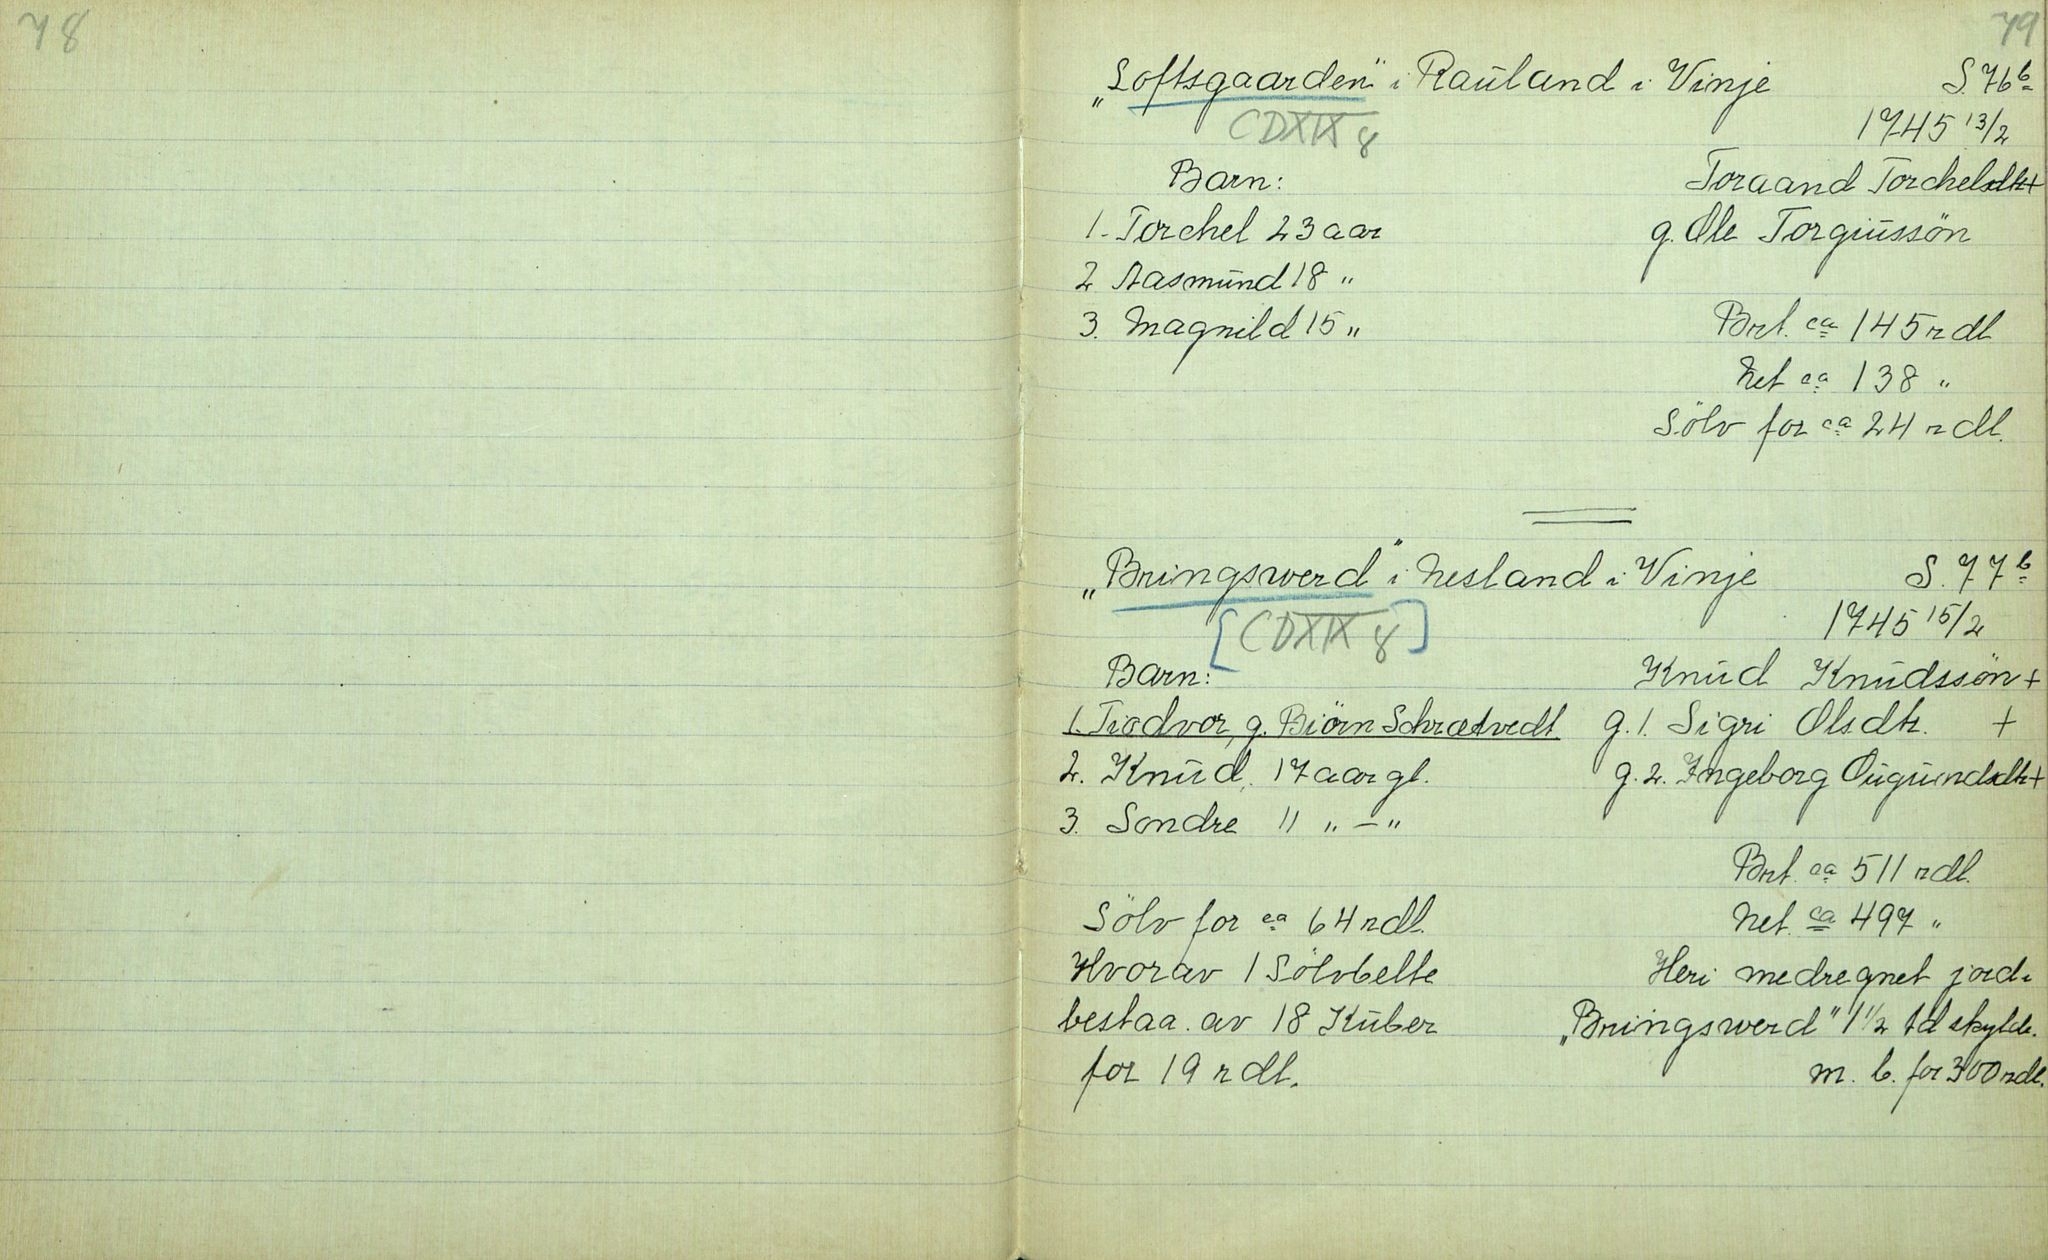 78
79
„Loftsgaarden" i Rauland i Vinje S. 76 b
CDXIX 8
1745 13/2
Barn: Toraand Torchelsdtr +
1. Torchel 23 aar g. Ole Torgiussön
2. Aasmund 18 "
3. Magnild 15 " Brt. ca 145 rdl
Net ca 138 "
Sölv for ca 24 rdl.
„Bringswerd" i Nesland i Vinje S. 77 b
[CDXIX 8]
1745 15/2
Barn: Knud Knudssön +
1. Tiodvor, g. Biörn Schrætvedt g. 1. Sigri Olsdtr. +
2. Knud, 17 aar gl. g. 2. Ingeborg Ougundsdtr +
3. Sondre 11 " — "
Brt. ca 511 rdl.
Sölv for ca 64 rdl. Net. ca 497 "
Hvorav 1 Sölvbelte Heri medregnet jord i
bestaa. av 18 Kuber „Bringswerd" 1 1/2 td skyld.
for 19 rdl. m. b. for 300 rdl.